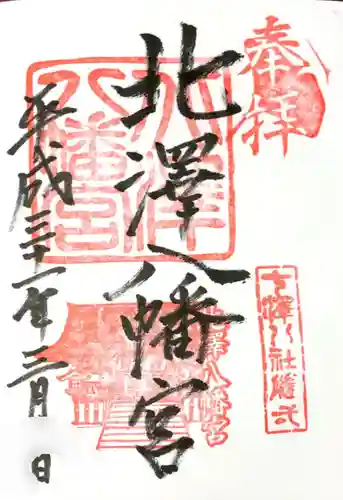 奉拝
北澤八幡宮
七澤八社随弌
北澤八幡宮
平成三十一年三月 日